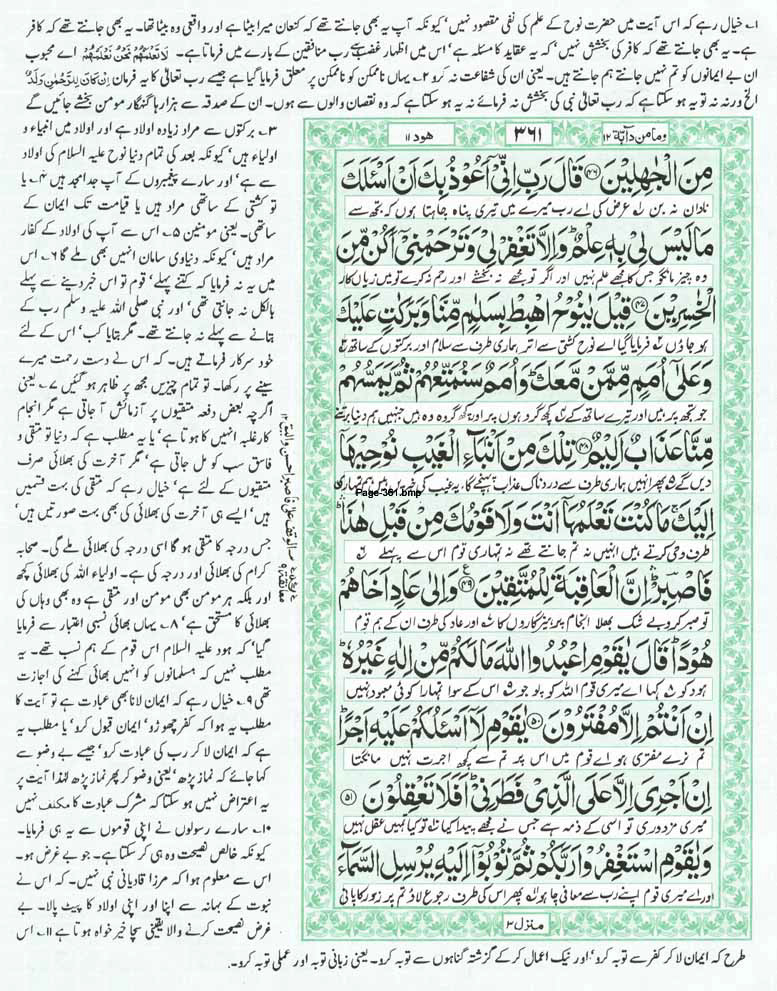 ۱؎ خیال رہے کہ اس آیت میں حضرت نوح کے علم کی نفی مقصود نہیں' کیونکہ آپ یہ بھی جانتے تھے کہ کنعان میرا بیٹا ہے اور واقعی وہ بیٹا تھا۔ یہ بھی جانتے تھے کہ وہ کافر
ہے۔ یہ بھی جانتے تھے کہ کافر کی بخشش نہیں' کہ یہ عقاید کا مسئلہ ہے' اس میں اظہار غضب ہے رب منافقین کے بارے میں فرماتا ہے۔ لَا تَعْلَمُهُمْ نَحْنُ نَعْلَمُهُمْ اے محبوب
ان بے ایمانوں کو تم نہیں جانتے ہم جانتے ہیں۔ یعنی ان کی شفاعت نہ کرو ۲؎ یہاں ناممکن کو ناممکن پر معلق فرمایا گیا ہے جیسے رب تعالیٰ کا یہ فرمان اِنْ كَانَ لِلرَّحْمٰنِ وَلَدٌ
الخ ورنہ نہ تو یہ ہو سکتا ہے کہ رب تعالیٰ نبی کی بخشش نہ فرمائے نہ یہ ہو سکتا ہے کہ وہ نقصان والوں سے ہوں۔ ان کے صدقہ سے ہزارہا گنہگار مومن بخشے جائیں گے
وما من دآبة ۱۲
۳۶۱
هود ۱۱
مِنَ الْجٰهِلِيْنَ ﴿۴۶﴾ قَالَ رَبِّ اِنِّىْٓ اَعُوْذُ بِكَ اَنْ اَسْئَلَكَ
نادان نہ بن ۱؎ عرض کی اے رب میرے میں تیری پناہ چاہتا ہوں کہ تجھ سے
مَا لَيْسَ لِىْ بِهٖ عِلْمٌ ؕ وَاِلَّا تَغْفِرْ لِىْ وَتَرْحَمْنِىْٓ اَكُنْ مِّنَ
وہ چیز مانگو جس کا مجھے علم نہیں اور اگر تو مجھے نہ بخشے اور رحم نہ کرے تو میں زیاں کار
الْخٰسِرِيْنَ ﴿۴۷﴾ قِيْلَ يٰنُوْحُ اهْبِطْ بِسَلٰمٍ مِّنَّا وَبَرَكٰتٍ عَلَيْكَ
ہو جاؤں ۲؎ فرمایا گیا اے نوح کشتی سے اتر ہماری طرف سے سلام اور برکتوں کے ساتھ ۳؎
وَعَلٰٓى اُمَمٍ مِّمَّنْ مَّعَكَ ؕ وَاُمَمٌ سَنُمَتِّعُهُمْ ثُمَّ يَمَسُّهُمْ
جو تجھ پر ہیں اور تیرے ساتھ کے ۴؎ کچھ گروہوں پر اور کچھ گروہ وہ ہیں جنہیں ہم دنیا برتنے
مِّنَّا عَذَابٌ اَلِيْمٌ ﴿۴۸﴾ تِلْكَ مِنْ اَنْۢبَآءِ الْغَيْبِ نُوْحِيْهَآ
دیں گے ۵؎ پھر انہیں ہماری طرف سے دردناک عذاب پہنچے گا۔ یہ غیب کی خبریں ہیں ہم تمہاری
Page-361.bmp
اِلَيْكَ ۚ مَا كُنْتَ تَعْلَمُهَآ اَنْتَ وَلَا قَوْمُكَ مِنْ قَبْلِ هٰذَا ۛ
طرف وحی کرتے ہیں انہیں نہ تم جانتے تھے نہ تمہاری قوم اس سے پہلے ۶؎
فَاصْبِرْ ۛ اِنَّ الْعَاقِبَةَ لِلْمُتَّقِيْنَ ﴿۴۹﴾ وَاِلٰى عَادٍ اَخَاهُمْ
تو صبر کرو بے شک بھلا انجام پرہیزگاروں کا ۷؎ اور عاد کی طرف ان کے ہم قوم
هُوْدًا ؕ قَالَ يٰقَوْمِ اعْبُدُوا اللّٰهَ مَا لَكُمْ مِّنْ اِلٰهٍ غَيْرُهٗ ؕ
ہود کو ۸؎ کہا اے میری قوم اللہ کو پوجو ۹؎ اس کے سوا تمہارا کوئی معبود نہیں
اِنْ اَنْتُمْ اِلَّا مُفْتَرُوْنَ ﴿۵۰﴾ يٰقَوْمِ لَآ اَسْئَلُكُمْ عَلَيْهِ اَجْرًا ؕ
تم نرے مفتری ہو اے قوم میں اس پر تم سے کچھ اجرت نہیں مانگتا
اِنْ اَجْرِىَ اِلَّا عَلَى الَّذِىْ فَطَرَنِىْ ؕ اَفَلَا تَعْقِلُوْنَ ﴿۵۱﴾
میری مزدوری تو اسی کے ذمہ ہے جس نے مجھے پیدا کیا ۱۰؎ تو کیا تمہیں عقل نہیں
وَيٰقَوْمِ اسْتَغْفِرُوْا رَبَّكُمْ ثُمَّ تُوْبُوْٓا اِلَيْهِ يُرْسِلِ السَّمَآءَ
اور اے میری قوم اپنے رب سے معافی چاہو ۱۱؎ پھر اس کی طرف رجوع لاؤ تم پر زور کا پانی
منزل ۳
۳؎ برکتوں سے مراد زیادہ اولاد ہے اور اولاد میں انبیاء و
اولیاء ہیں' کیونکہ بعد کی تمام دنیا نوح علیہ السلام کی اولاد
سے ہے' اور سارے پیغمبروں کے آپ جد امجد ہیں ۴؎ یا
تو کشتی کے ساتھی مراد ہیں یا قیامت تک ایمان کے
ساتھی۔ یعنی مومنین ۵؎ اس سے آپ کی اولاد کے کفار
مراد ہیں' کیونکہ دنیاوی سامان انہیں بھی ملے گا ۶؎ اس
میں یہ نہ فرمایا کہ کتنے پہلے' قوم تو اس خبر دینے سے پہلے
بالکل نہ جانتی تھی' اور نبی صلی اللہ علیہ وسلم رب کے
بتانے سے پہلے نہ جانتے تھے۔ مگر بتایا کب' اس کے لئے
خود سرکار فرماتے ہیں۔ کہ اس نے دست رحمت میرے
سینے پر رکھا۔ تو تمام چیزیں مجھ پر ظاہر ہو گئیں ۷؎ یعنی
اگرچہ بعض دفعہ متقیوں پر آزمائش آ جاتی ہے مگر انجام
کار غلبہ انہیں کا ہوتا ہے' یا یہ مطلب ہے کہ دنیا تو متقی و
فاسق سب کو مل جاتی ہے' مگر آخرت کی بھلائی صرف
متقیوں کے لئے ہے' خیال رہے کہ متقی کی بہت قسمیں
ہیں' ایسے ہی آخرت کی بھلائی کی بھی بہت صورتیں ہیں'
جس درجہ کا متقی ہو گا اسی درجہ کی بھلائی ملے گی۔ صحابہ
کرام کی بھلائی اور درجہ کی ہے۔ اولیاء اللہ کی بھلائی کچھ
اور بلکہ ہر مومن بھی مومن اور متقی ہے وہ بھی وہاں کی
بھلائی کا مستحق ہے' ۸؎ یہاں بھائی نسبی اعتبار سے فرمایا
گیا' کہ ہود علیہ السلام اس قوم کے ہم نسب تھے۔ یہ
مطلب نہیں کہ مسلمانوں کو انہیں بھائی کہنے کی اجازت
تھی ۹؎ خیال رہے کہ ایمان لانا بھی عبادت ہے تو آیت کا
مطلب یہ ہوا کہ کفر چھوڑو' ایمان قبول کرو' یا مطلب یہ
ہے کہ ایمان لا کر رب کی عبادت کرو' جیسے بے وضو سے
کہا جائے کہ نماز پڑھ' یعنی وضو کر پھر نماز پڑھ لہٰذا آیت پر
یہ اعتراض نہیں ہو سکتا کہ مشرک عبادت کا مکلف نہیں
۱۰؎ سارے رسولوں نے اپنی قوموں سے یہ ہی فرمایا۔
کیونکہ خالص نصیحت وہ ہی کر سکتا ہے۔ جو بے غرض ہو۔
اس سے معلوم ہوا کہ مرزا قادیانی نبی نہیں۔ کہ اس نے
نبوت کے بہانہ سے اپنا اور اپنی اولاد کا پیٹ پالا۔ بے
غرض نصیحت کرنے والا یقینی سچا خیر خواہ ہوتا ہے ۱۱؎ اس
طرح کہ ایمان لا کر کفر سے توبہ کرو' اور نیک اعمال کر کے گزشتہ گناہوں سے توبہ کرو۔ یعنی زبانی توبہ اور عملی توبہ کرو۔